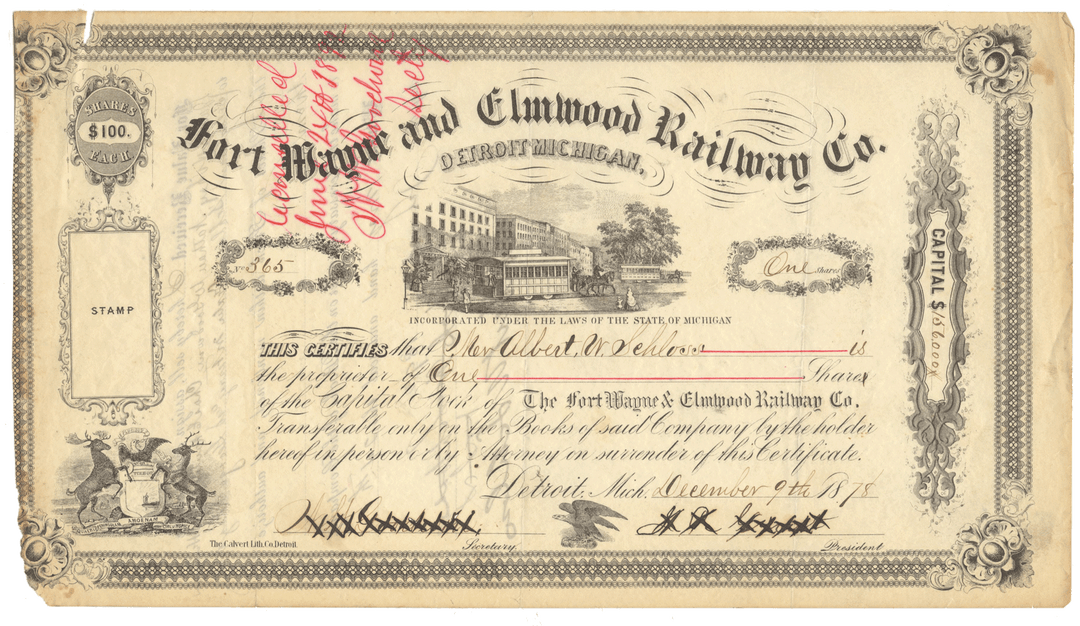 Cancelled
June 24th 189
Woodward
Secty
SHARES
$100.
EACH.
Fort Wayne and Elmwood Railway Co.
DETROIT MICHIGAN.
No 365
One Shares
STAMP
CAPITAL $156,000.
INCORPORATED UNDER THE LAWS OF THE STATE OF MICHIGAN
THIS CERTIFIES that Mr Albert. W. Schloss is
the proprietor of One Share
of the Capital Stock of The Fort Wayne & Elmwood Railway Co.
Transferable only on the Books of said Company by the holder
hereof in person or by Attorney on surrender of this Certificate.
Detroit, Mich. December 9th 1878
The Calvert Lith. Co. Detroit.
Secretary.
President.